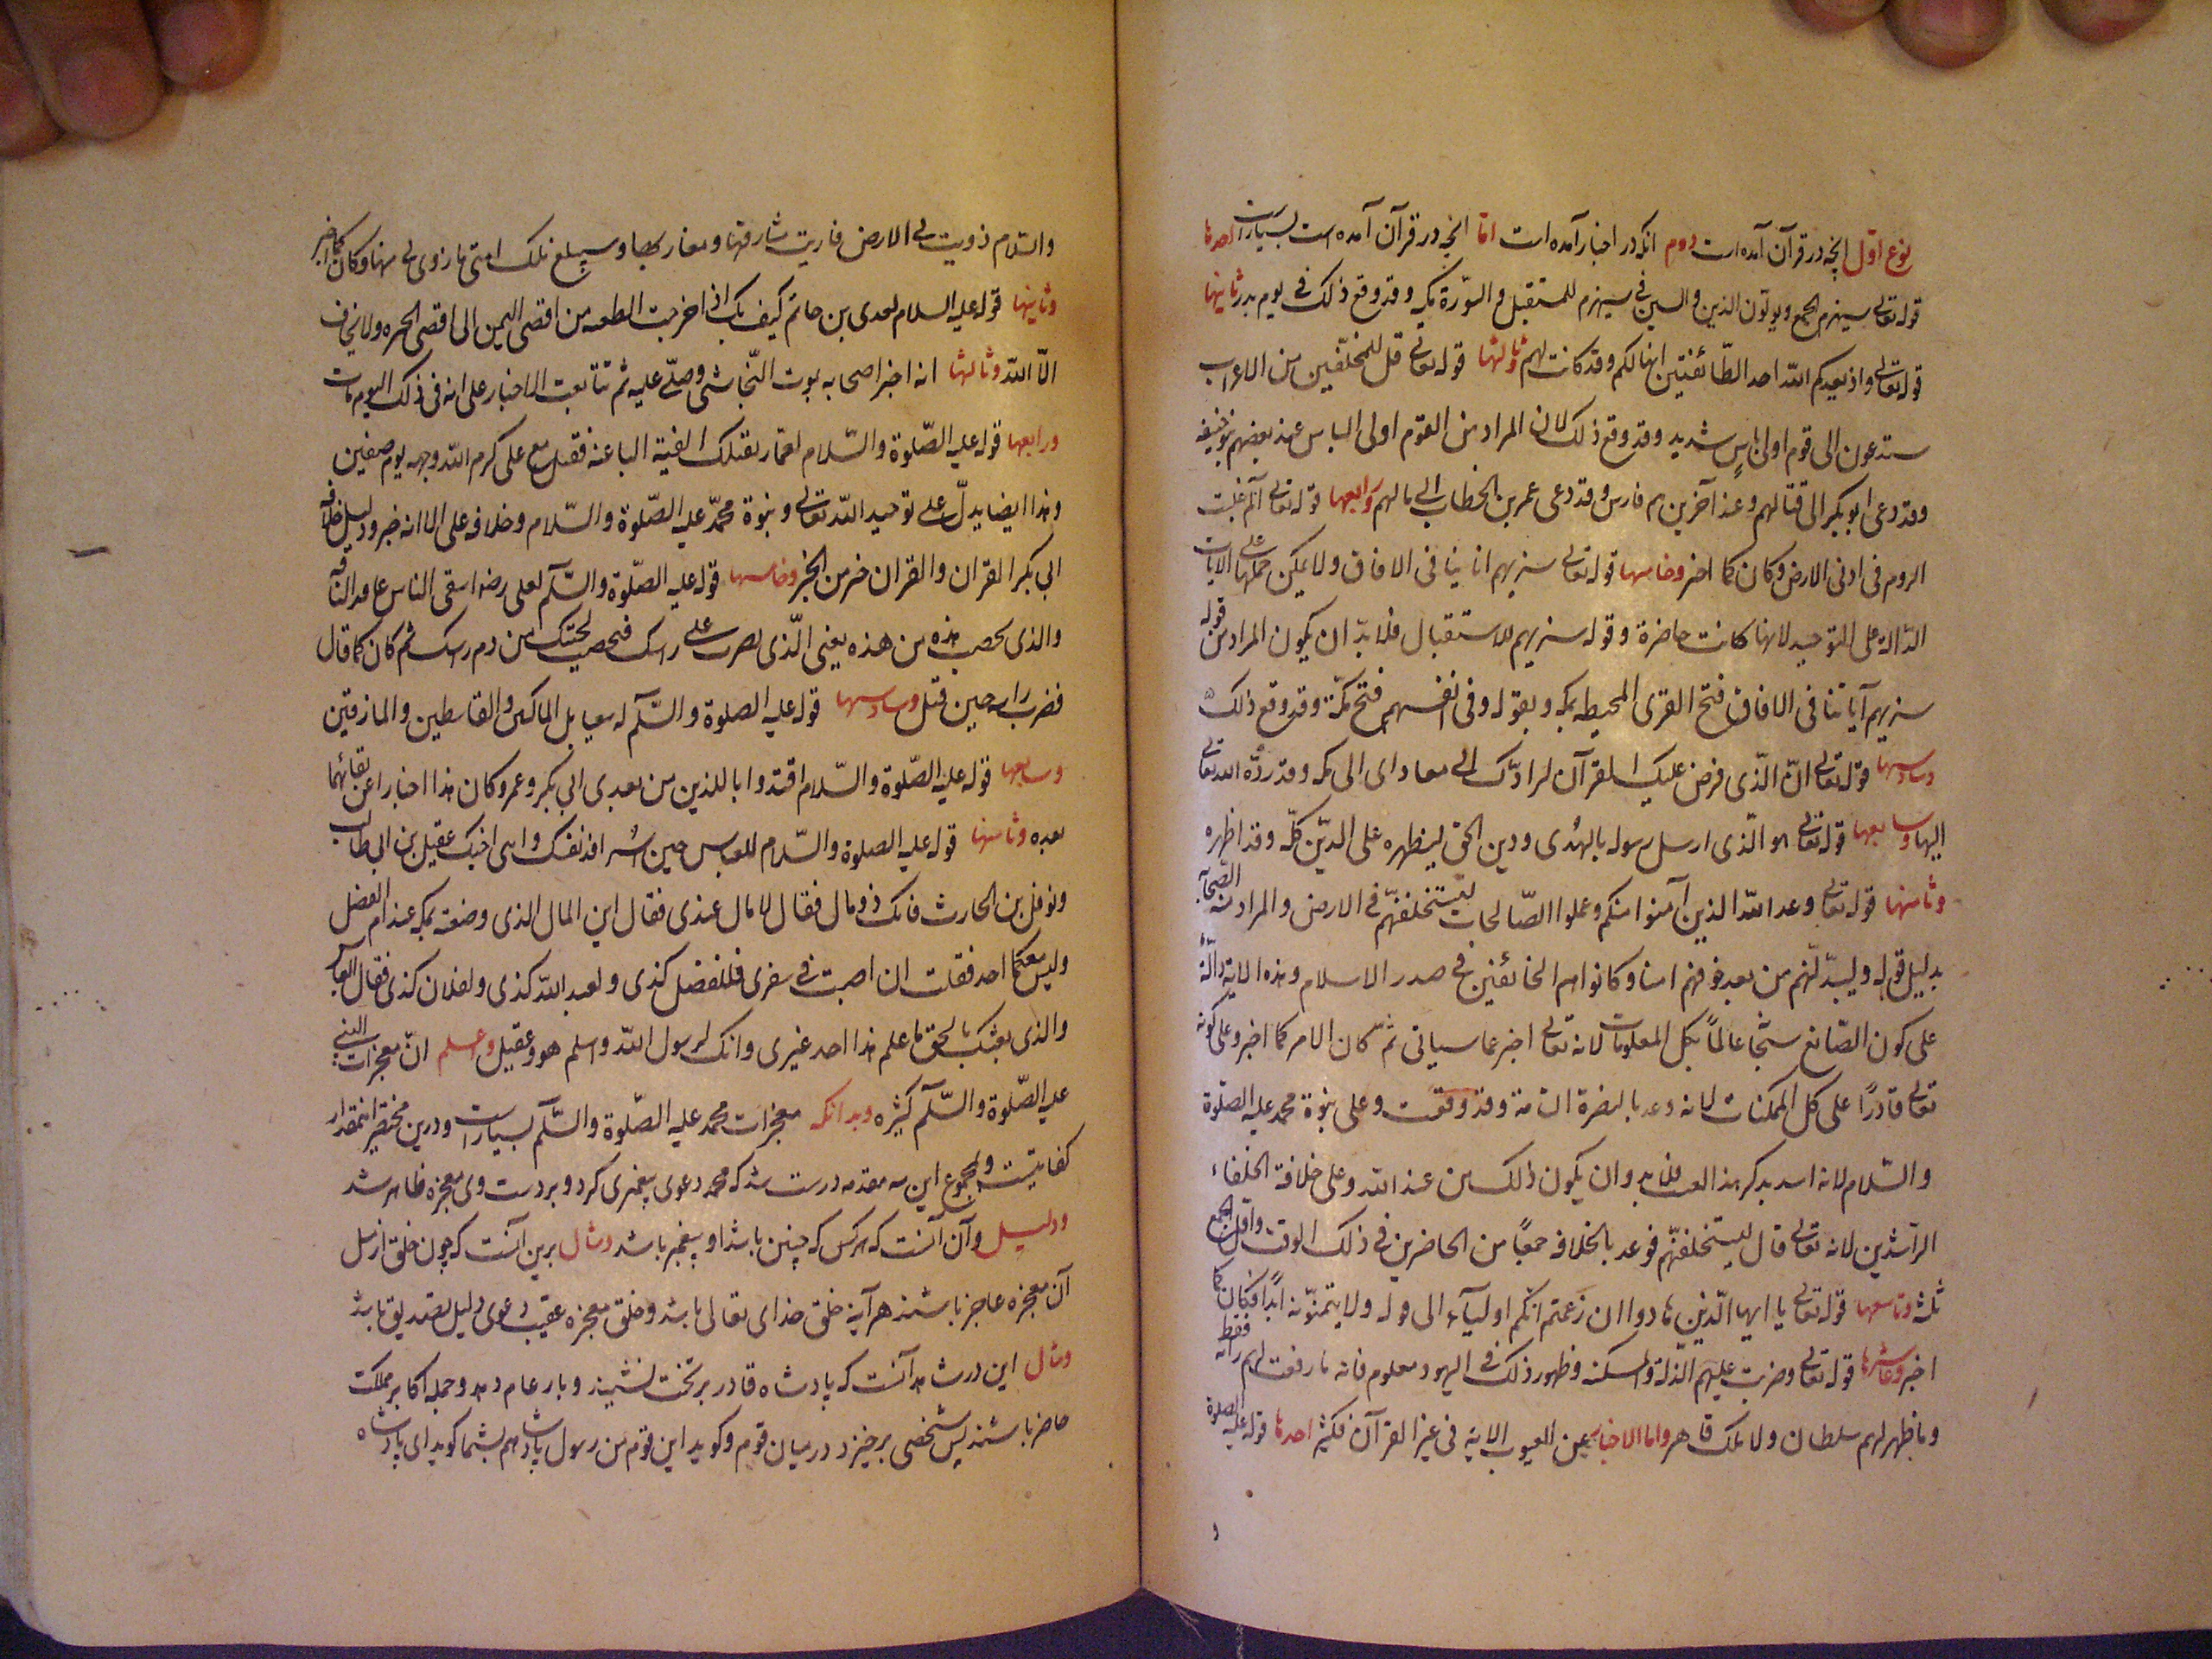 نوع اول آنچه در قرآن آمده است دوم آنکه در اخبار آمده است اما آنچه در قرآن آمده است بسیار است احدها
قوله تعالی سیهزم الجمع ویولون الدبر والسین فی سیهزم للمستقبل والسورة مکیه وقد وقع ذلک فی یوم بدر ثانیها
قوله تعالی واذ یعدکم الله احد الطائفتین انها لکم وقد کانت لهم وثالثها قوله تعالی قل للمخلفین من الاعراب
ستدعون الی قوم اولی باس شدید وقد وقع ذلک لان المراد من القوم اولی الباس عند بعضهم بنو حنیفه
وقد دعی ابو بکر الی قتالهم وعند آخرین هم فارس وقد دعی عمر بن الخطاب الی مالهم ورابعها قوله تعالی الم غلبت
الروم فی ادنی الارض وکان کما اخبر وخامسها قوله تعالی سنریهم ایاتنا فی الافاق ولا یمکن حملها علی الایات
الدالة علی التوحید لانها کانت حاضرة وقوله سنریهم للاستقبال فلا بد ان یکون المراد من قوله
سنریهم آیاتنا فی الافاق فتح القری المحیطه بمکه وبقوله وفی انفسهم فتح مکة وقد وقع ذلک
وسادسها قوله تعالی ان الذی فرض علیک القرآن لرادک الی معاد ای الی مکه وقد رده الله تعالی
الیها وسابعها قوله تعالی هو الذی ارسل رسوله بالهدی ودین الحق لیظهره علی الدین کله وقد اظهره
وثامنها قوله تعالی وعد الله الذین آمنوا منکم وعملوا الصالحات لیستخلفنهم فی الارض والمراد منه الصحابة
بدلیل قوله ولیبدلنهم من بعد خوفهم امنا وکانوا هم الخائفین فی صدر الاسلام وهذه الایة دالة
علی کون الصانع عالماً بکل المعلومات لانه تعالی اخبر عما سیاتی ثم کان الامر کما اخبر وعلی کونه
تعالی قادراً علی کل الممکنات لانه وعد بالنصرة وقد وقعت وعلی نبوة محمد علیه الصلوة
والسلام لانه وان یکون ذلک من عند الله وعلی خلافة الخلفاء
الراشدین لانه تعالی قال لیستخلفنهم فوعد بالخلافة جمعاً من الحاضرین فی ذلک الوقت واقل الجمع
ثلثه وتاسعها قوله تعالی یا ایها الذین هادوا ان زعمتم انکم اولیآء الی قوله ولا یتمنونه ابداً فکان کما
اخبر وعاشرها قوله تعالی وضربت علیهم الذلة والمسکنه وظهور ذلک فی الیهود معلوم فانه ما رفعت لهم رایة فقط
وما ظهر لهم سلطان ولا ملک قاهر واما الاخبار عن الغیوب الاتیه فی غیر القرآن فکثیر احدها قوله علیه الصلوة
والسلام زویت لی الارض فاریت مشارقها ومغاربها وسیبلغ ملک امتی ما زوی لی منها وکان کما اخبر
وثانیها قوله علیه السلام لعدی بن حاتم کیف بک اذا خرجت الظعینه من اقصی الیمن الی اقصی الحیره ولا تخاف
الا الله وثالثها انه اخبر اصحابه بموت النجاشی وصلی علیه ثم تتابعت الاخبار علی انه فی ذلک الیوم مات
ورابعها قوله علیه الصلوة والسلام لعمار تقتلک الفئیة الباغیه فقتل مع علی کرم الله وجهه یوم صفین
وهذا ایضا یدل علی توحید الله تعالی ونبوة محمد علیه الصلوة والسلام وخلافه علی الا انه خبر ودلیل خلافه
ابی بکر القران والقران خیر من الخبر وخامسها قوله علیه الصلوة والسلم لعلی رضه اشقی الناس عاقر الناقه
والذی یخضب هذه من هذه یعنی الذی یضرب علی راسک فیخضب لحیتک من دم راسک ثم کان کما قال
فضرب راسه حین قتل وسادسها قوله علیه الصلوة والسلم له سیقاتل الناکثین والقاسطین والمارقین
وسابعها قوله علیه الصلوة والسلام اقتدوا باللذین من بعدی ابی بکر وعمر وکان هذا اخبارا عن بقائهما
بعده وثامنها قوله علیه الصلوة والسلام للعباس حین اسر افد نفسک وابنی اخیک عقیل بن ابی طالب
ونوفل بن الحارث فانک ذو مال فقال لا مال عندی فقال این المال الذی وضعته بمکه عند ام الفضل
ولیس معکما احد فقلت ان اصبت فی سفری فللفضل کذی ولعبد الله کذی ولفلان کذی فقال العباس
والذی بعثک بالحق ما علم هذا احد غیری وانک لرسول الله واسلم هو وعقیل واعلم ان معجزات النبی
علیه الصلوة والسلم کثیره وبدانکه معجزات محمد علیه الصلوة والسلم بسیار است ودرین مختصر اینمقدار
کفایتست وبمجموع این سه مقدمه درست شد که محمد دعوی پیغمبری کرد وبر دست وی معجزه ظاهر شد
ودلیل وآن آنست که هر کس که چنین باشد او پیغمبر باشد ومثال برین آنست که چون خلق از مثل
آن معجزه عاجز باشند هر آینه خلق خدای تعالی باشد وخلق معجزه عقیب دعوی دلیل تصدیق باشد
ومثال این در شاهد آنست که پادشاه قادر بر تخت نشیند وبار عام دهد وجمله اکابر مملکت
حاضر باشند پس شخصی برخیزد در میان قوم وگوید این قوم من رسول پادشاهم بشما گوید ای پادشاه